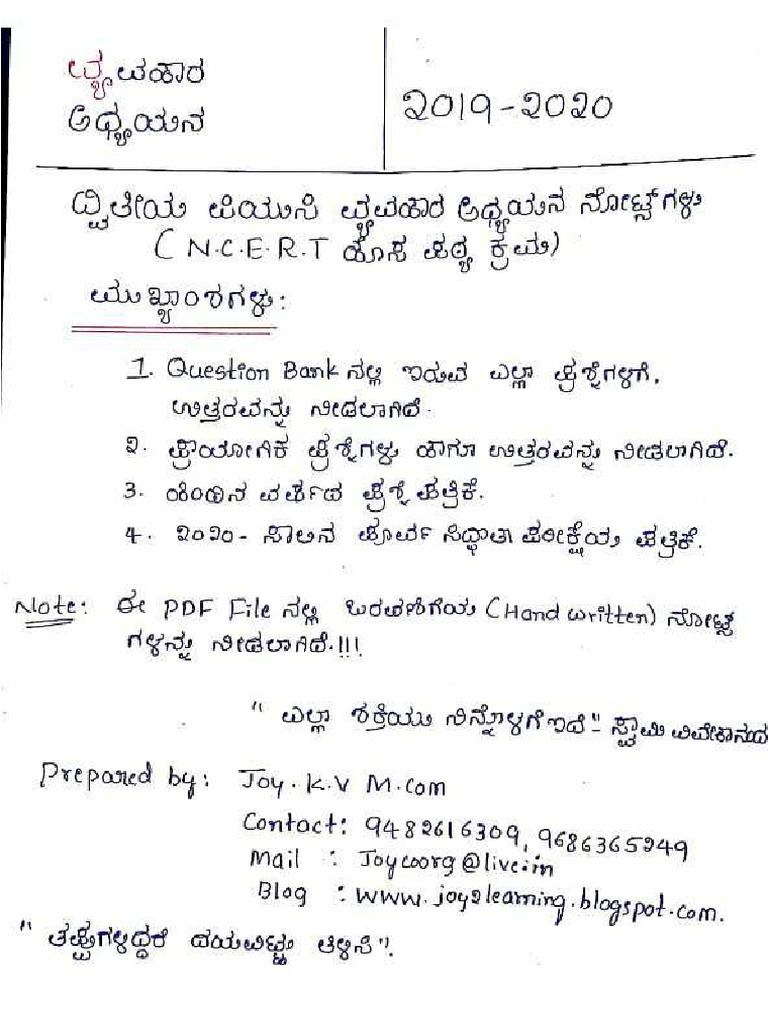 ವ್ಯವಹಾರ
ಅಧ್ಯಯನ
೨೦19-೨೦೨೦
ದ್ವಿತೀಯ ಪಿಯುಸಿ ವ್ಯವಹಾರ ಅಧ್ಯಯನ ನೋಟ್ಸ್‌ಗಳು
(N.C.E.R.T ಹೊಸ ಪಠ್ಯ ಕ್ರಮ)
ಮುಖ್ಯಾಂಶಗಳು:
1. Question Bank ನಲ್ಲಿ ಇರುವ ಎಲ್ಲಾ ಪ್ರಶ್ನೆಗಳಿಗೆ.
ಉತ್ತರವನ್ನು ನೀಡಲಾಗಿದೆ.
೨. ಪ್ರಾಯೋಗಿಕ ಪ್ರಶ್ನೆಗಳು ಹಾಗೂ ಉತ್ತರವನ್ನು ನೀಡಲಾಗಿದೆ.
3. ಹಿಂದಿನ ವರ್ಷದ ಪ್ರಶ್ನೆ ಪತ್ರಿಕೆ.
4. ೨೦೨೦- ಸಾಲಿನ ಪೂರ್ವ ಸಿದ್ಧತಾ ಪರೀಕ್ಷೆಯ ಪತ್ರಿಕೆ.
Note: ಈ PDF File ನಲ್ಲಿ ಬರಹಣಿಗೆಯ (Hand written) ನೋಟ್ಸ
ಗಳನ್ನು ನೀಡಲಾಗಿದೆ.!!!
" ಎಲ್ಲಾ ಶಕ್ತಿಯು ನಿನ್ನೊಳಗೆ ಇದೆ"- ಸ್ವಾಮಿ ವಿವೇಕಾನಂದ
Prepared by: Joy.K.V M.com
Contact: 9482616309, 9686365249
Mail : Joycoorg@live.in
Blog : www.joy2learning.blogspot.com.
" ತಪ್ಪುಗಳಿದ್ದರೆ ದಯವಿಟ್ಟು ತಿಳಿಸಿ".